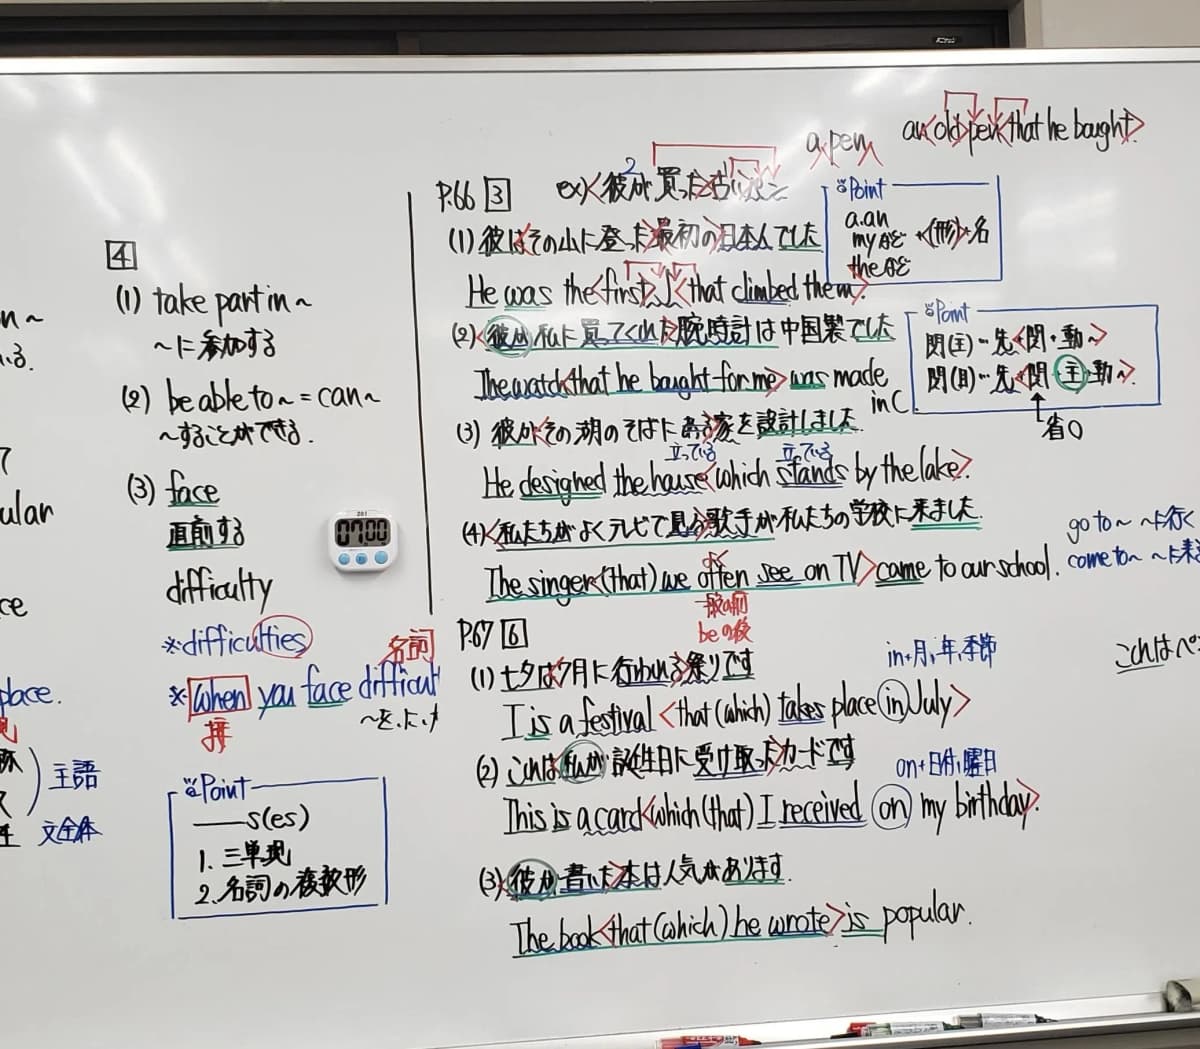 n~
いる.
ular
ce
place.
主語
文全体
4
(1) take part in ~
~に参加する
(2) be able to ~ = can ~
~することができる.
(3) face
直面する
difficulty
※difficulties
名詞
※When you face difficult
接
~を,に,け
Point
——s(es)
1. 三単現
2. 名詞の複数形
07:00
a pen
an<old>pen<that he bought>.
P.66 3
ex)<彼が買った><古い>ペン
2
1
Point
a.an
my など +<形>+名
the など
(1) 彼は<その山に登った><最初の>日本人でした
He was the<first>J<that climbed them>.
(2)<彼が私に買ってくれた>腕時計は中国製でした
The watch<that he bought for me> was made
in C.
Point
関(主)…先<関・動~>
関(目)…先<関・主・動~>.
省O
(3) 彼が<その湖のそばにある>家を設計しました.
立っている
立っている
He designed the house<which stands by the lake>.
(4)<私たちがよくテレビで見る>歌手が私たちの学校に来ました.
よく
The singer<(that) we often see on TV>came to our school.
一般の前
beの後
go to~ ~に行く
come to~ ~に来る
P.67 6
(1) 七夕は<7月に行われる>祭りです
in+月,年,季節
I is a festival <that(which) takes place in July>
(2) これは<私が誕生日に受け取った>カードです
on+日付,曜日
This is a card<which(that) I received on my birthday>.
(3)<彼が書いた>本は人気があります.
The book<that(which) he wrote>is popular.
これはペ